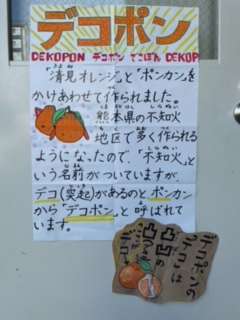 デコポン
DEKOPON デコポン でこぽん DEKOP
「清見オレンジ」と「ポンカン」を
かけあわせて作られました。
熊本県の不知火
地区で多く作られる
ようになったので、「不知火」と
いう名前がついていますが、
デコ(突起)があるのと ポンカン
から「デコポン」と 呼ばれて
います。
デコポンの
デコは
凸凹の
凸のデコ